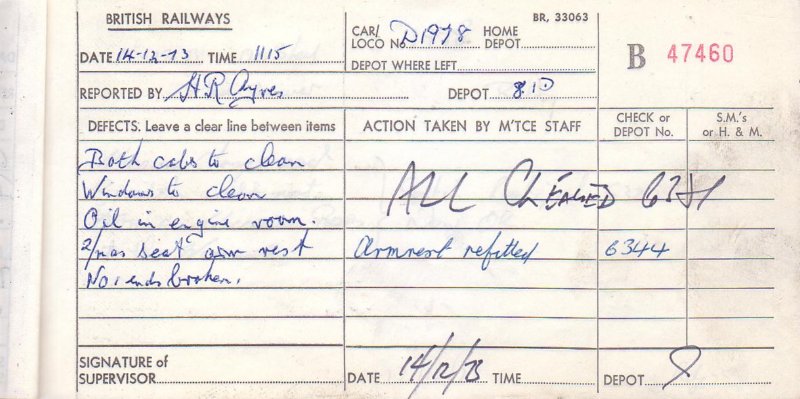 BRITISH RAILWAYS
BR, 33063
DATE 14-12-73 TIME 1115
CAR/ LOCO No D1978 HOME DEPOT
DEPOT WHERE LEFT
B 47460
REPORTED BY HR Ayres DEPOT 81D
DEFECTS. Leave a clear line between items
ACTION TAKEN BY M'TCE STAFF
CHECK or DEPOT No.
S.M.'s or H. & M.
Both cabs to clean
Windows to clean
ALL CLEANED
Oil in engine room.
2/mans seat arm rest
Armrest refitted 6344
No1 ends broken.
SIGNATURE of SUPERVISOR
DATE 14/12/73 TIME DEPOT